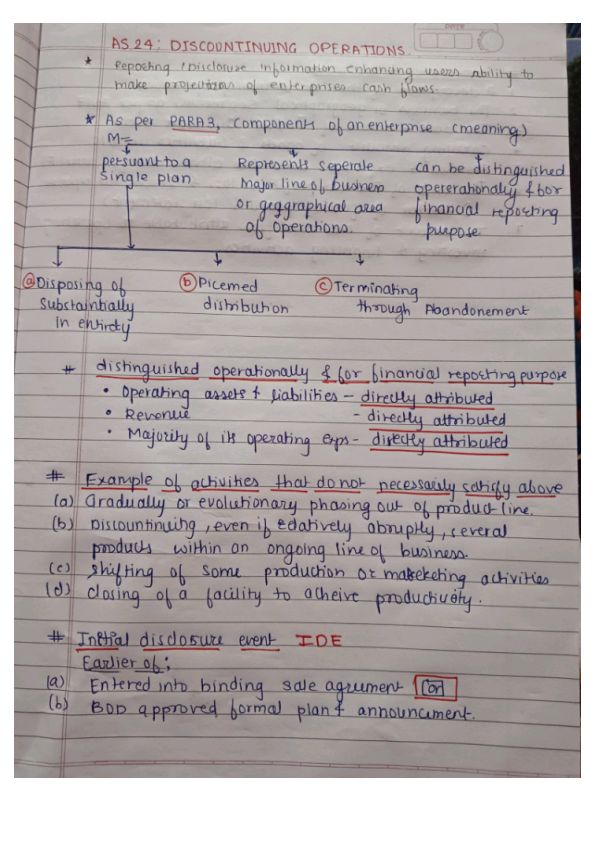 DATE
AS 24: DISCOUNTINUING OPERATIONS.
* Reporting / Disclosure information enhancing users ability to
make projections of enterprises cash flows.
* As per PARA 3, components of an enterprise (meaning)
M=
persuant to a
single plan
Represents seperate
major line of business
or geggraphical area
of operations.
can be distinguished
opererationally & for
financial reposting
purpose
(a) Disposing of
substaintially
in entirety
(b) Picemed
distribution
(c) Terminating
through Abandonement
# distinguished operationally & for financial reposting purpose
• Operating assets & liabilities - directly attributed
• Revenue - directly attributed
• Majority of its operating exps - directly attributed
# Example of activities that do not necessarily satisfy above
(a) Gradually or evolutionary phasing out of product line.
(b) Discountinuing, even if edatively abruptly, several
products within an ongoing line of business.
(c) shifting of some production or maseketing activities
(d) closing of a facility to acheive productivity.
# Initial disclosure event IDE
Earlier of:
(a) Entered into binding sale agrument (or)
(b) BOD approved formal plan & announcement.